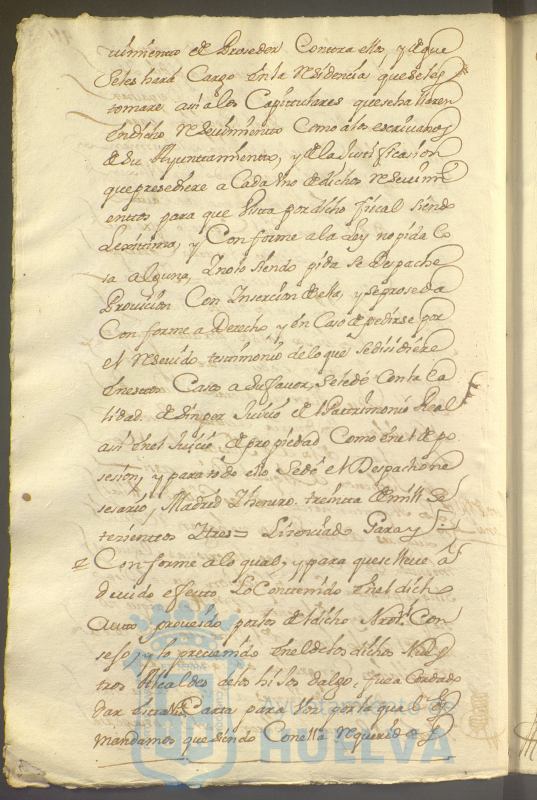 uimiento de Proseder Contra ellos, y de que
seles hará Cargo en la Residencia que seles
tomare, asi a los Capitulares que se hallaren
en dicho Reseuimiento Como a los escriuanos
de su Ayuntamiento, y de la Justificasion
que presediere a Cada Vno de dichos Reseuimi
entos para que Vista por dicho fiscal siendo
Lexitima, y Conforme a la Ley no pida Co
sa alguna, Y no lo siendo pida se Despache
Prouicion Con Ynsercion de ella, y se proseda
Conforme a Derecho, y en Caso de pedirse por
el Reseuido testimonio de lo que se disidiere
en estos Casos a su fauor, se le dé Con la Ca
lidad de sin per Juicio del Patrimonio Real
asi en el Juicio de propiedad Como en el de po
sesion, y para todo ello se dé el Despacho ne
sesario, Madrid Y henero treinta de mill se
tesientos Ytres= Lizenciado Garay
Conforme a lo qual, y para que se lleue á
deuido efecto Lo Contenido en el dich
Auto proueido por los del dicho Nrõ Con
sejo, y lo preuenido en el de los dichos Nues
tros Alcaldes de los hijos dalgo, fue acordado
dar esta Nrã Carta para Vos por la qual Os
mandamos que siendo Con ella Requerid
Ayuntamiento de
HUELVA